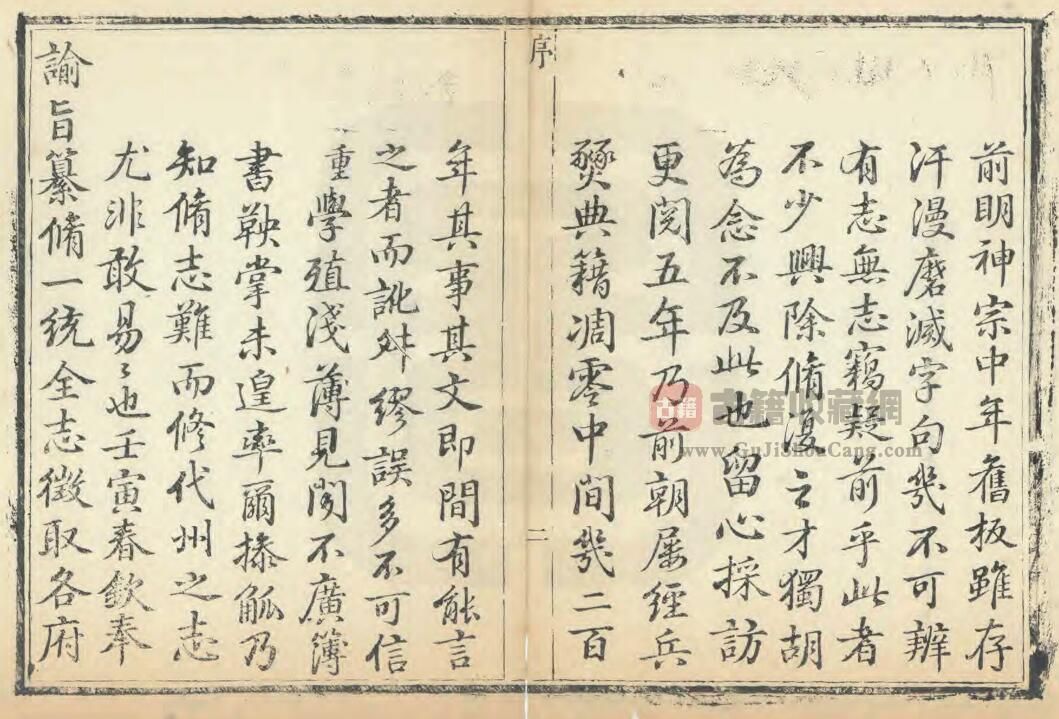 前明神宗中年舊板雖存
汗漫磨滅字句幾不可辨
有志無志竊疑前乎此者
不少興除脩復之才獨胡
為念不及此也留心採訪
更閱五年乃前朝屢經兵
燹典籍凋零中間幾二百
序
二
年其事其文即間有能言
之者而訛舛繆誤多不可信
重學殖淺薄見聞不廣簿
書鞅掌未遑率爾掭觚乃
知脩志難而修代州之志
尤非敢易〻也壬寅春欽奉
諭旨纂脩一統全志徵取各府
古籍
古籍收藏網
www.GuJiShouCang.com